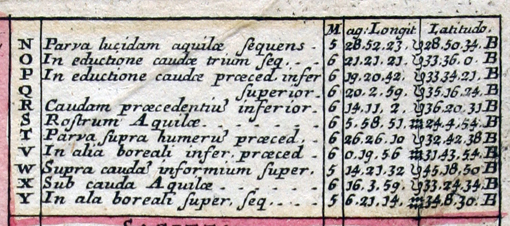 Mag: Longit. Latitudo.
N Parva lucidam aquilæ sequens. 5 28.52.23. ♑ 28.50.34. B
O In eductione caudæ trium seq. 6 21.21.21. ♑ 33.36.0. B
P In eductione caudæ præced. infer 6 19.20.42. ♑ 33.34.21. B
Q superior. 6 20.2.59. ♑ 35.16.24. B
R Caudam præcedentiū inferior. 6 14.11.2. ♑ 36.20.31 B
S Rostrum Aquilæ 6 5.58.51. ♒ 24.4.54. B
T Parva supra humerū præced. 6 26.26.10 ♑ 32.42.38 B
V In alia boreali infer. præced 6 0.19.56 ♒ 31.43.54. B
W Supra caudā informium super. 5 14.21.32 ♑ 45.18.50 B
X Sub cauda Aquilæ 6 16.3.59. ♑ 33.24.34 B
Y In ala boreali super. seq. 5 6.21.14. ♒ 34.8.30. B